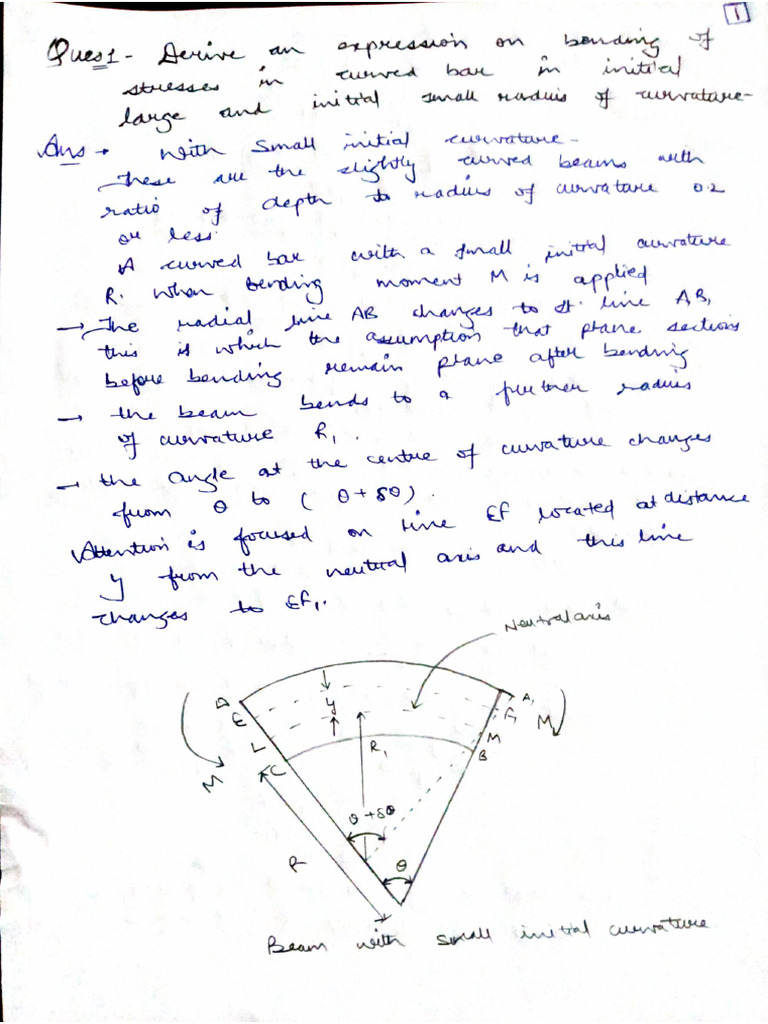 1
Ques1 - Derive an expression on bending of
stresses in curved bar in initial
large and initial small radius of curvature-
Ans → With small initial curvature-
These are the slightly curved beams with
ratio of depth to radius of curvature 0.2
or less.
A curved bar with a small initial curvature
R. When bending moment M is applied
→ The radial line AB changes to st. line A,B,
this is which the assumption that plane sections
before bending remain plane after bending
→ the beam bends to a further radius
of curvature R1.
→ the angle at the centre of curvature changes
from θ to (θ+δθ).
Attention is focused on line Ef located at distance
y from the neutral axis and this line
changes to Ef1.
Neutral axis
D
E
L
C
y
R1
A1
F1
M
B
M
M
θ+δθ
R
θ
Beam with small initial curvature